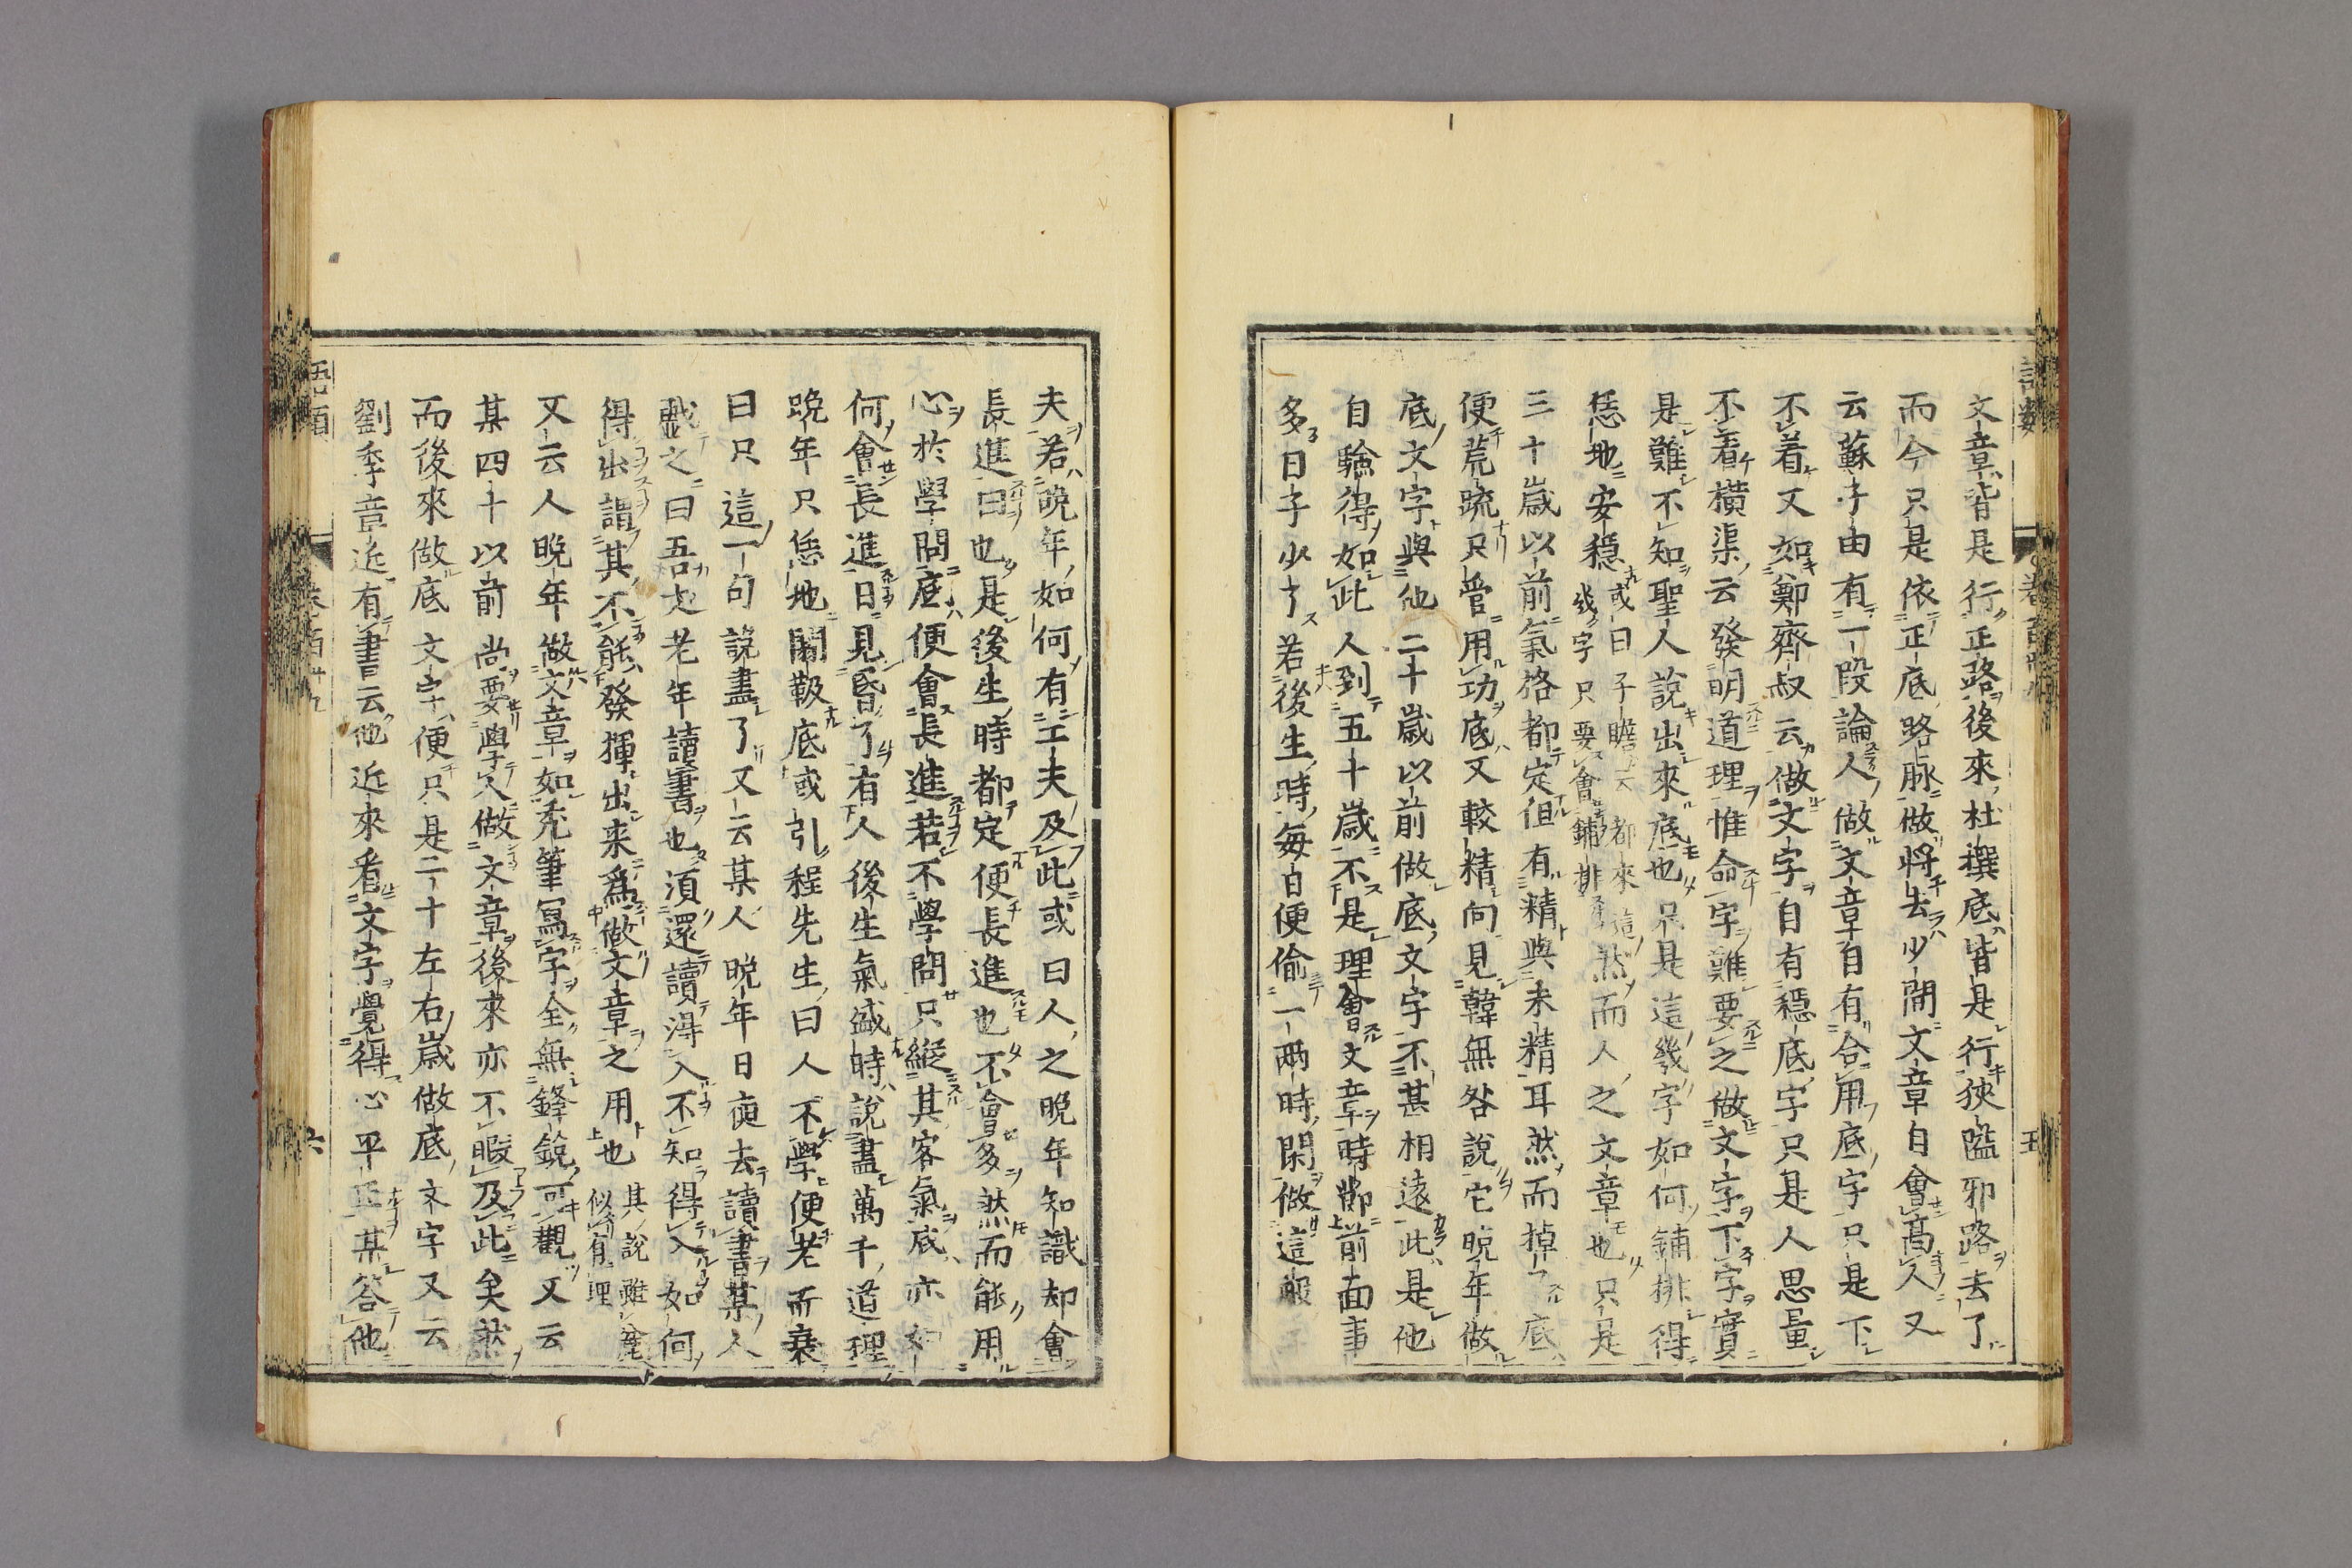 文章皆是行正路後來杜撰底皆是行狹隘邪路去了
而今只是依正底路脉做將去少間文章自會高人又
云蘇子由有一段論人做文章自有合用底字只是下
不着又如鄭齊叔云做文字自有穩底字只是人思量
不着橫渠云發明道理惟命字難要之做文字下字實
是難不知聖人說出來底也只是這幾字如何鋪排得
恁地安穩
或曰子瞻云都來這
幾字只要會鋪排
然而人之文章也只是
三十歲以前氣格都定但有精與未精耳然而掉了底
便荒疏只管用功底又較精向見韓無咎說它晚年做
底文字與他二十歲以前做底文字不甚相遠此是他
自驗得如此人到五十歲不是理會文章時節前面事
多日子少了若後生時每日便偷一兩時閑做這般
夫若晚年如何有工夫及此或曰人之晚年知識却會
長進曰也是後生時都定便長進也不會多然而能用
心於學問底便會長進若不學問只縱其客氣底亦如
何會長進日見昏了有人後生氣盛時說盡萬千道理
晚年只恁地闒靸底或引程先生曰人不學便老而衰
曰只這一句說盡了又云某人晚年日夜去讀書某人
戲之曰吾丈老年讀書也須還讀得入不知得入如何
得出謂其不能發揮出来爲做文章之用也
其說雖麄
似有理
又云人晚年做文章如禿筆寫字全無鋒銳可觀又云
某四十以前尚要學人做文章後來亦不暇及此矣然
而後來做底文字便只是二十左右歲做底文字又云
劉季章近有書云他近來看文字覺得心平正某答他